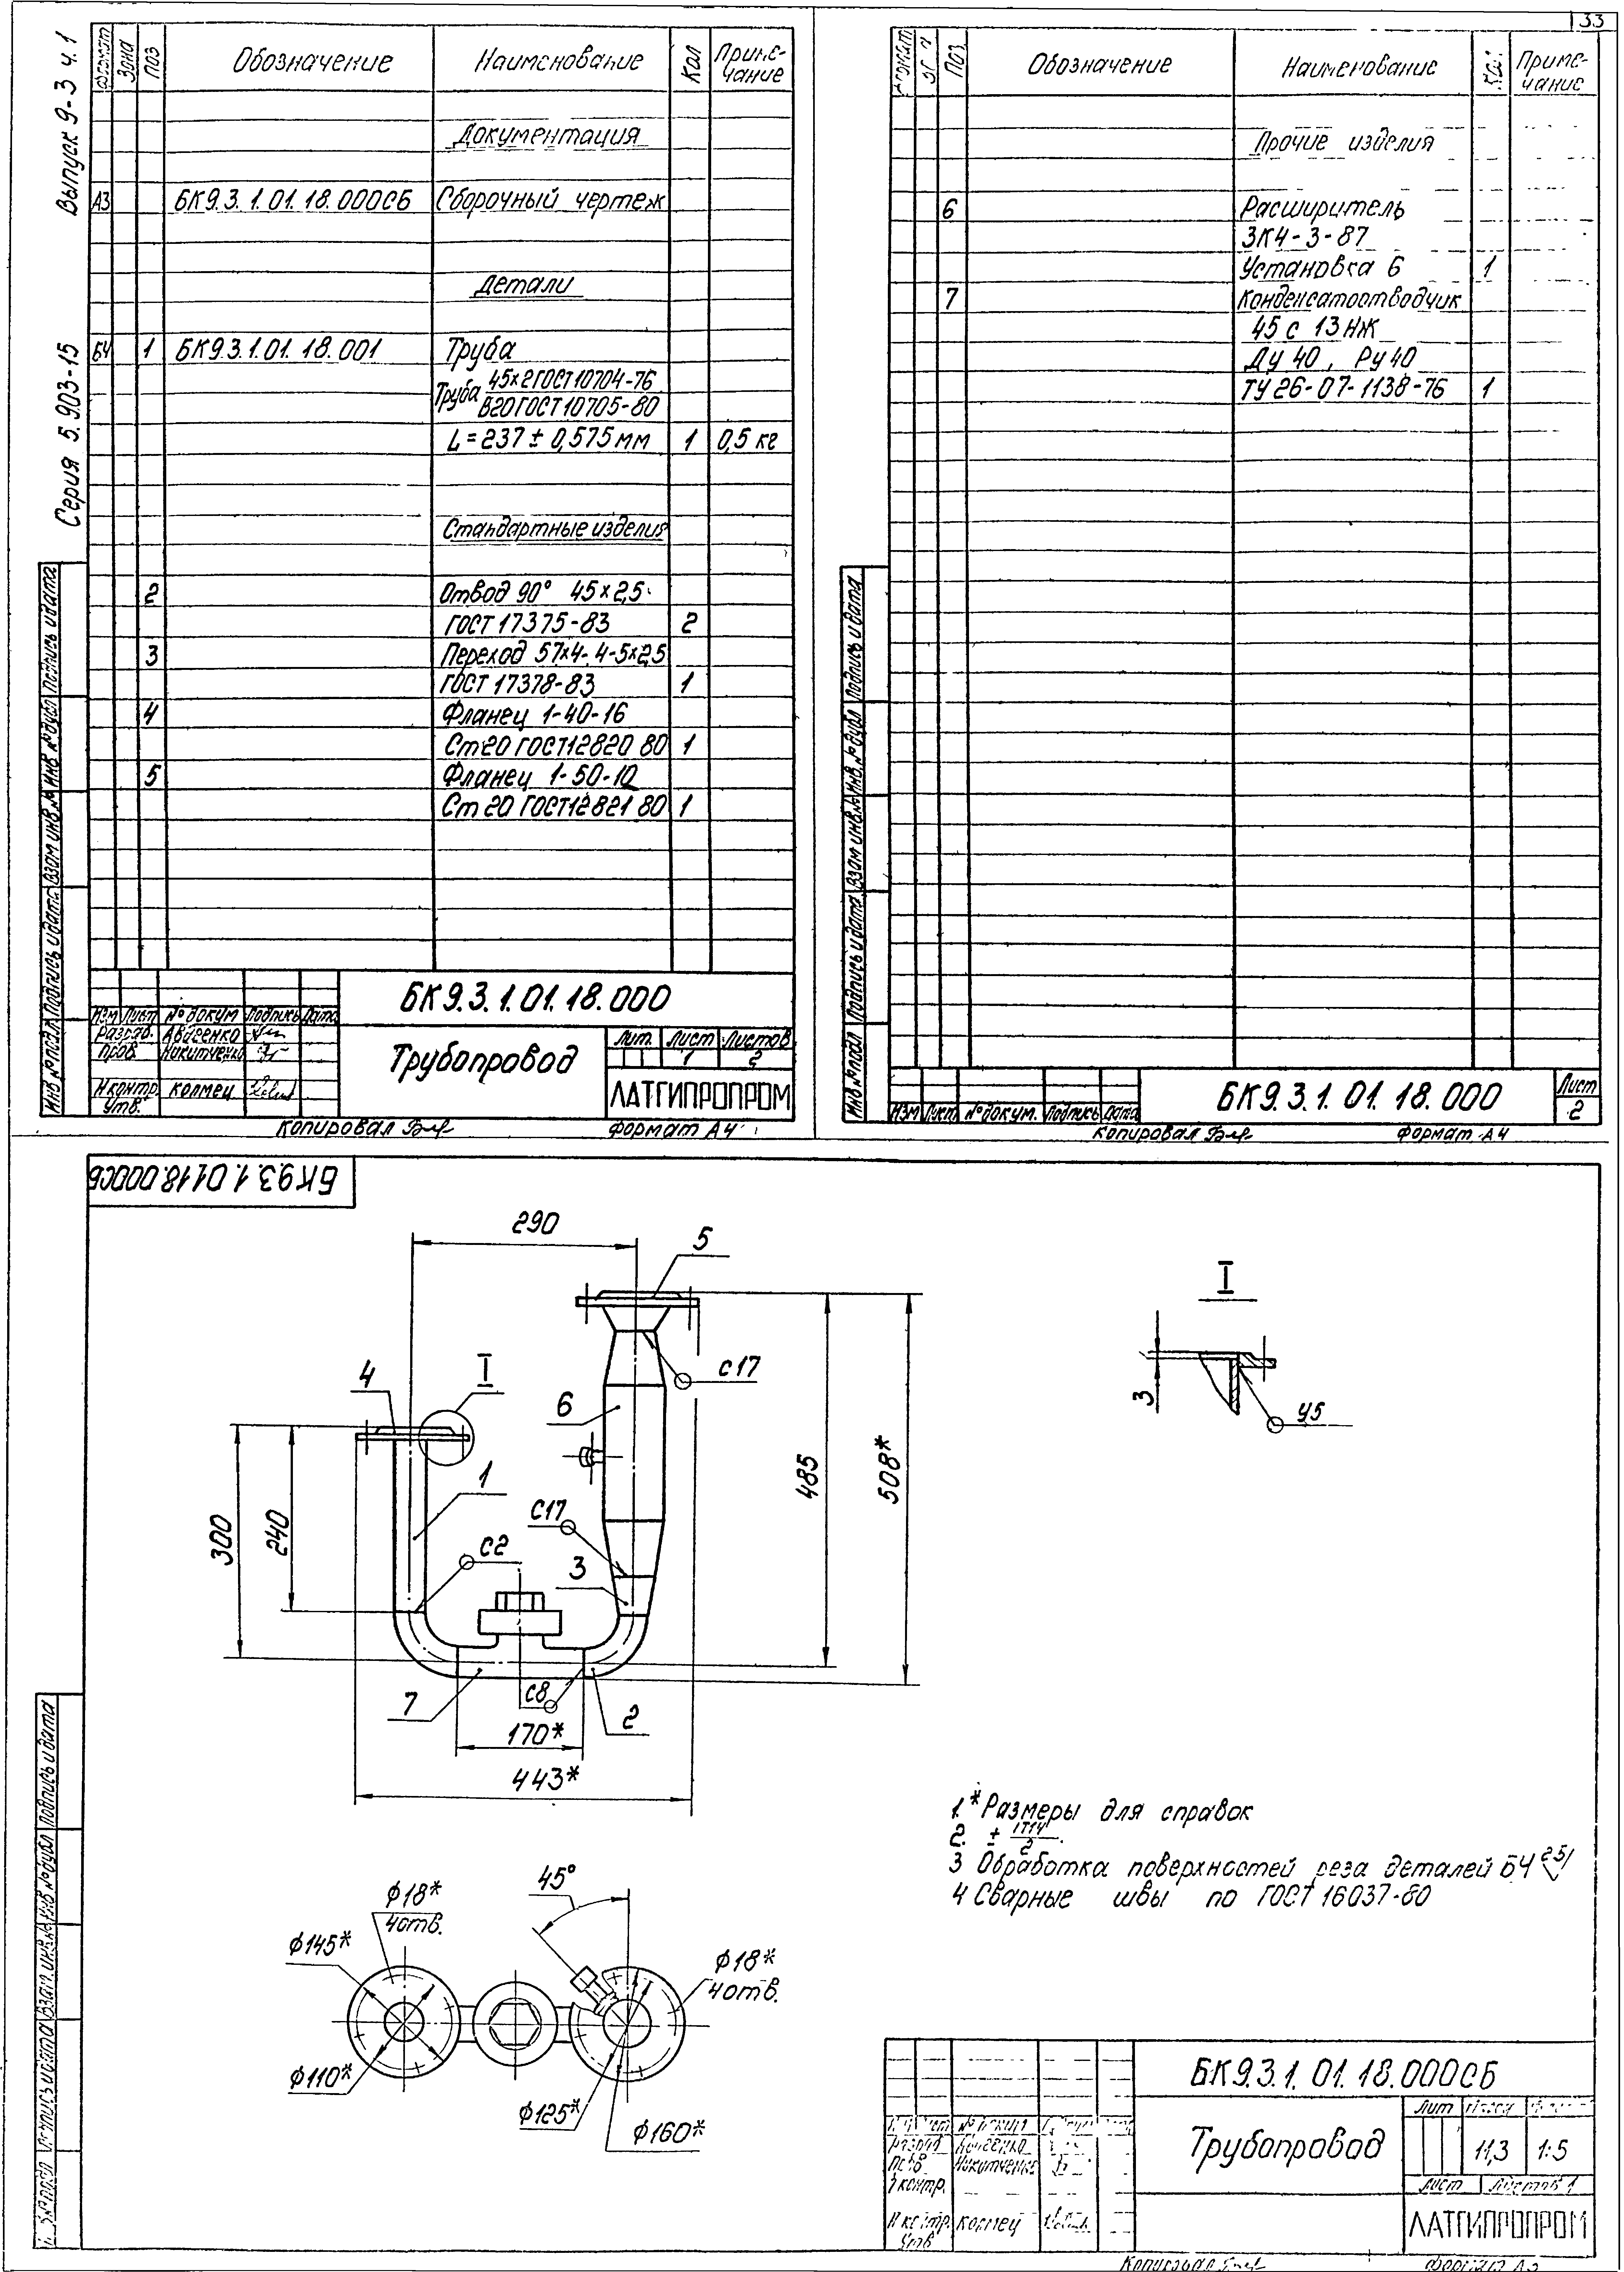 33
Выпуск 9-3 ч.1
Серия 5.903-15
Формат Зона Поз Обозначение Наименование Кол Приме-
чание
Документация
А3 БК9.3.1.01.18.000СБ Сборочный чертеж
Детали
БЧ 1 БК9.3.1.01.18.001 Труба
Труба 45х2ГОСТ10704-76
В20ГОСТ10705-80
L=237±0,575мм 1 0,5 кг
Стандартные изделия
2 Отвод 90° 45х2,5
ГОСТ 17375-83 2
3 Переход 57х4-4-5х2,5
ГОСТ 17378-83 1
4 Фланец 1-40-16
Ст20 ГОСТ12820 80 1
5 Фланец 1-50-10
Ст 20 ГОСТ12821 80 1
Инв № подл Подпись и дата Взам инв.№ Инв № дубл Подпись и дата
БК9.3.1.01.18.000
Изм Лист № докум Подпись Дата
Разраб. Авдеенко
Пров. Никитченко
Н контр. Колмец
Утв.
Трубопровод
Лит. Лист Листов
1 2
ЛАТГИПРОПРОМ
Копировал
Формат А4
Поз Обозначение Наименование Кол Приме-
чание
Прочие изделия
6 Расширитель
3К4-3-87
Установка 6 1
7 Конденсатоотводчик
45 с 13нж
Ду 40, Ру 40
ТУ 26-07-1138-76 1
Инв № подл Подпись и дата Взам инв.№ Инв.№ дубл Подпись и дата
Изм Лист № докум. Подпись Дата
БК9.3.1.01.18.000
Лист
2
Копировал
Формат А4
БК9.3.1.01 18.000СБ
290
5
I
4
I
6
С17
1
С17
С2
3
300
240
485
508*
3
У5
7
С8
2
170*
443*
1.*Размеры для справок
2. ± IT14
2
3 Обработка поверхностей реза деталей БЧ 25
4 Сварные швы по ГОСТ 16037-80
45°
ф18*
4отв.
ф145*
ф110*
ф18*
4отв.
ф125*
ф160*
Подпись и дата
БК9.3.1.01.18.000СБ
Трубопровод
Лит
11,3 1:5
Лист Листов 1
Никитченко
Н контр. Колмец
Утв
ЛАТГИПРОПРОМ
Копировал
Формат А3